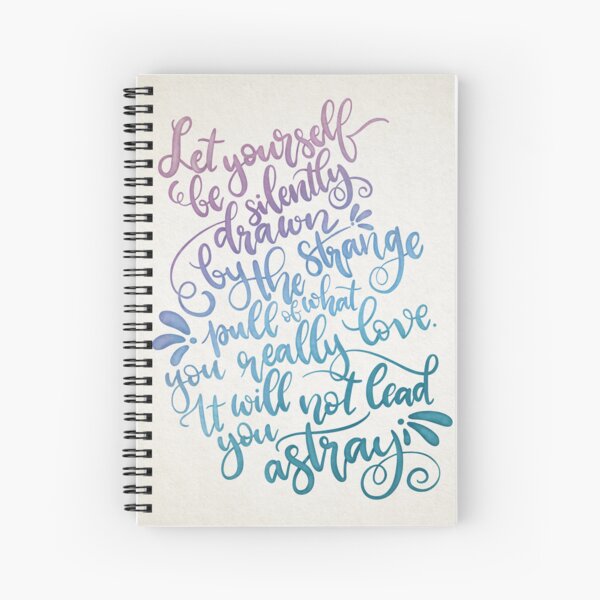 Let yourself
be silently
drawn
by the strange
pull of what
you really love.
It will not lead
you
astray